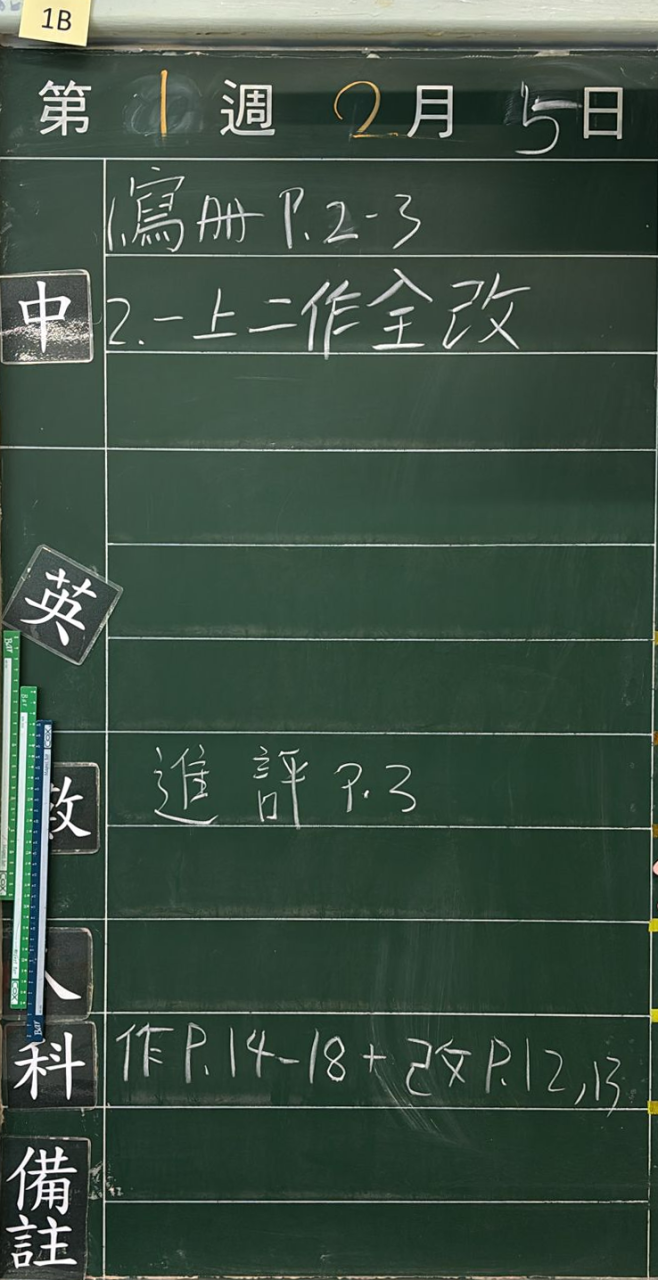 1B
第1週2月5日
1.寫冊 P.2-3
中
2.一上二作全改
英
進評 P.3
數
人
科
作P.14-18+改P.12,13
備註